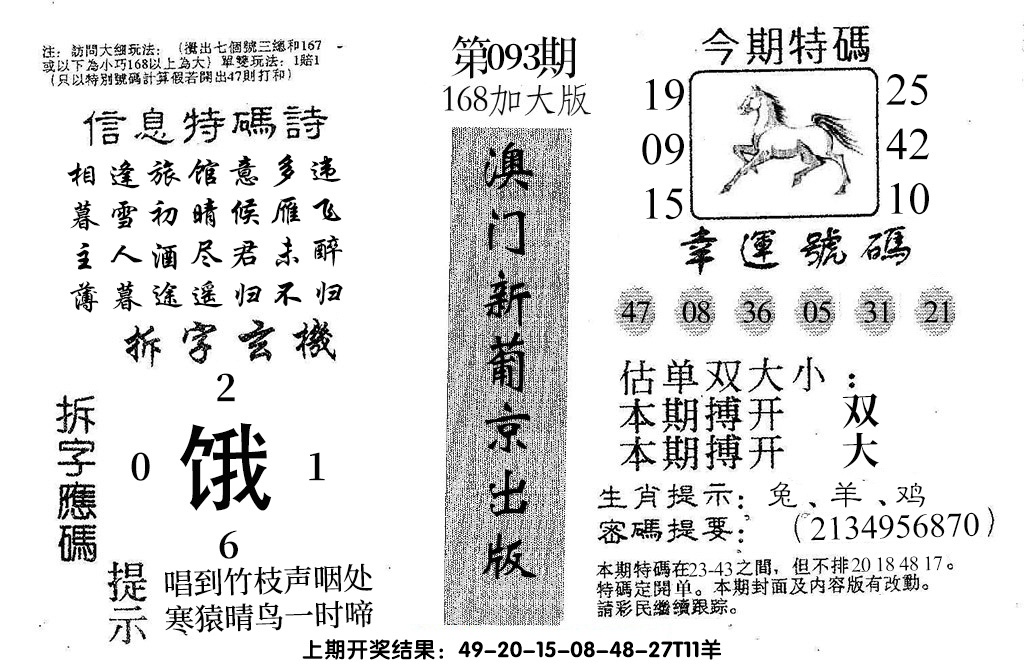 注：訪問大细玩法：（攪出七個號三總和167
或以下為小巧168以上為大）單雙玩法：1賠1
（只以特別號碼計算假若開出47則打和）
信息特碼詩
相逢旅馆意多违
暮雪初晴候雁飞
主人酒尽君未醉
薄暮途遥归不归
拆字玄機
拆字應碼
2
0 饿 1
6
提示
唱到竹枝声咽处
寒猿晴鸟一时啼
第093期
168加大版
澳门新葡京出版
今期特碼
19 25
09 42
15 10
幸運號碼
47 08 36 05 31 21
估单双大小：
本期搏开 双
本期搏开 大
生肖提示：兔、羊、鸡
密碼提要：（2134956870）
本期特碼在23-43之間，但不排20 18 48 17。
特碼定開单。本期封面及内容版有改動。
請彩民繼續跟踪。
上期开奖结果：49-20-15-08-48-27T11羊